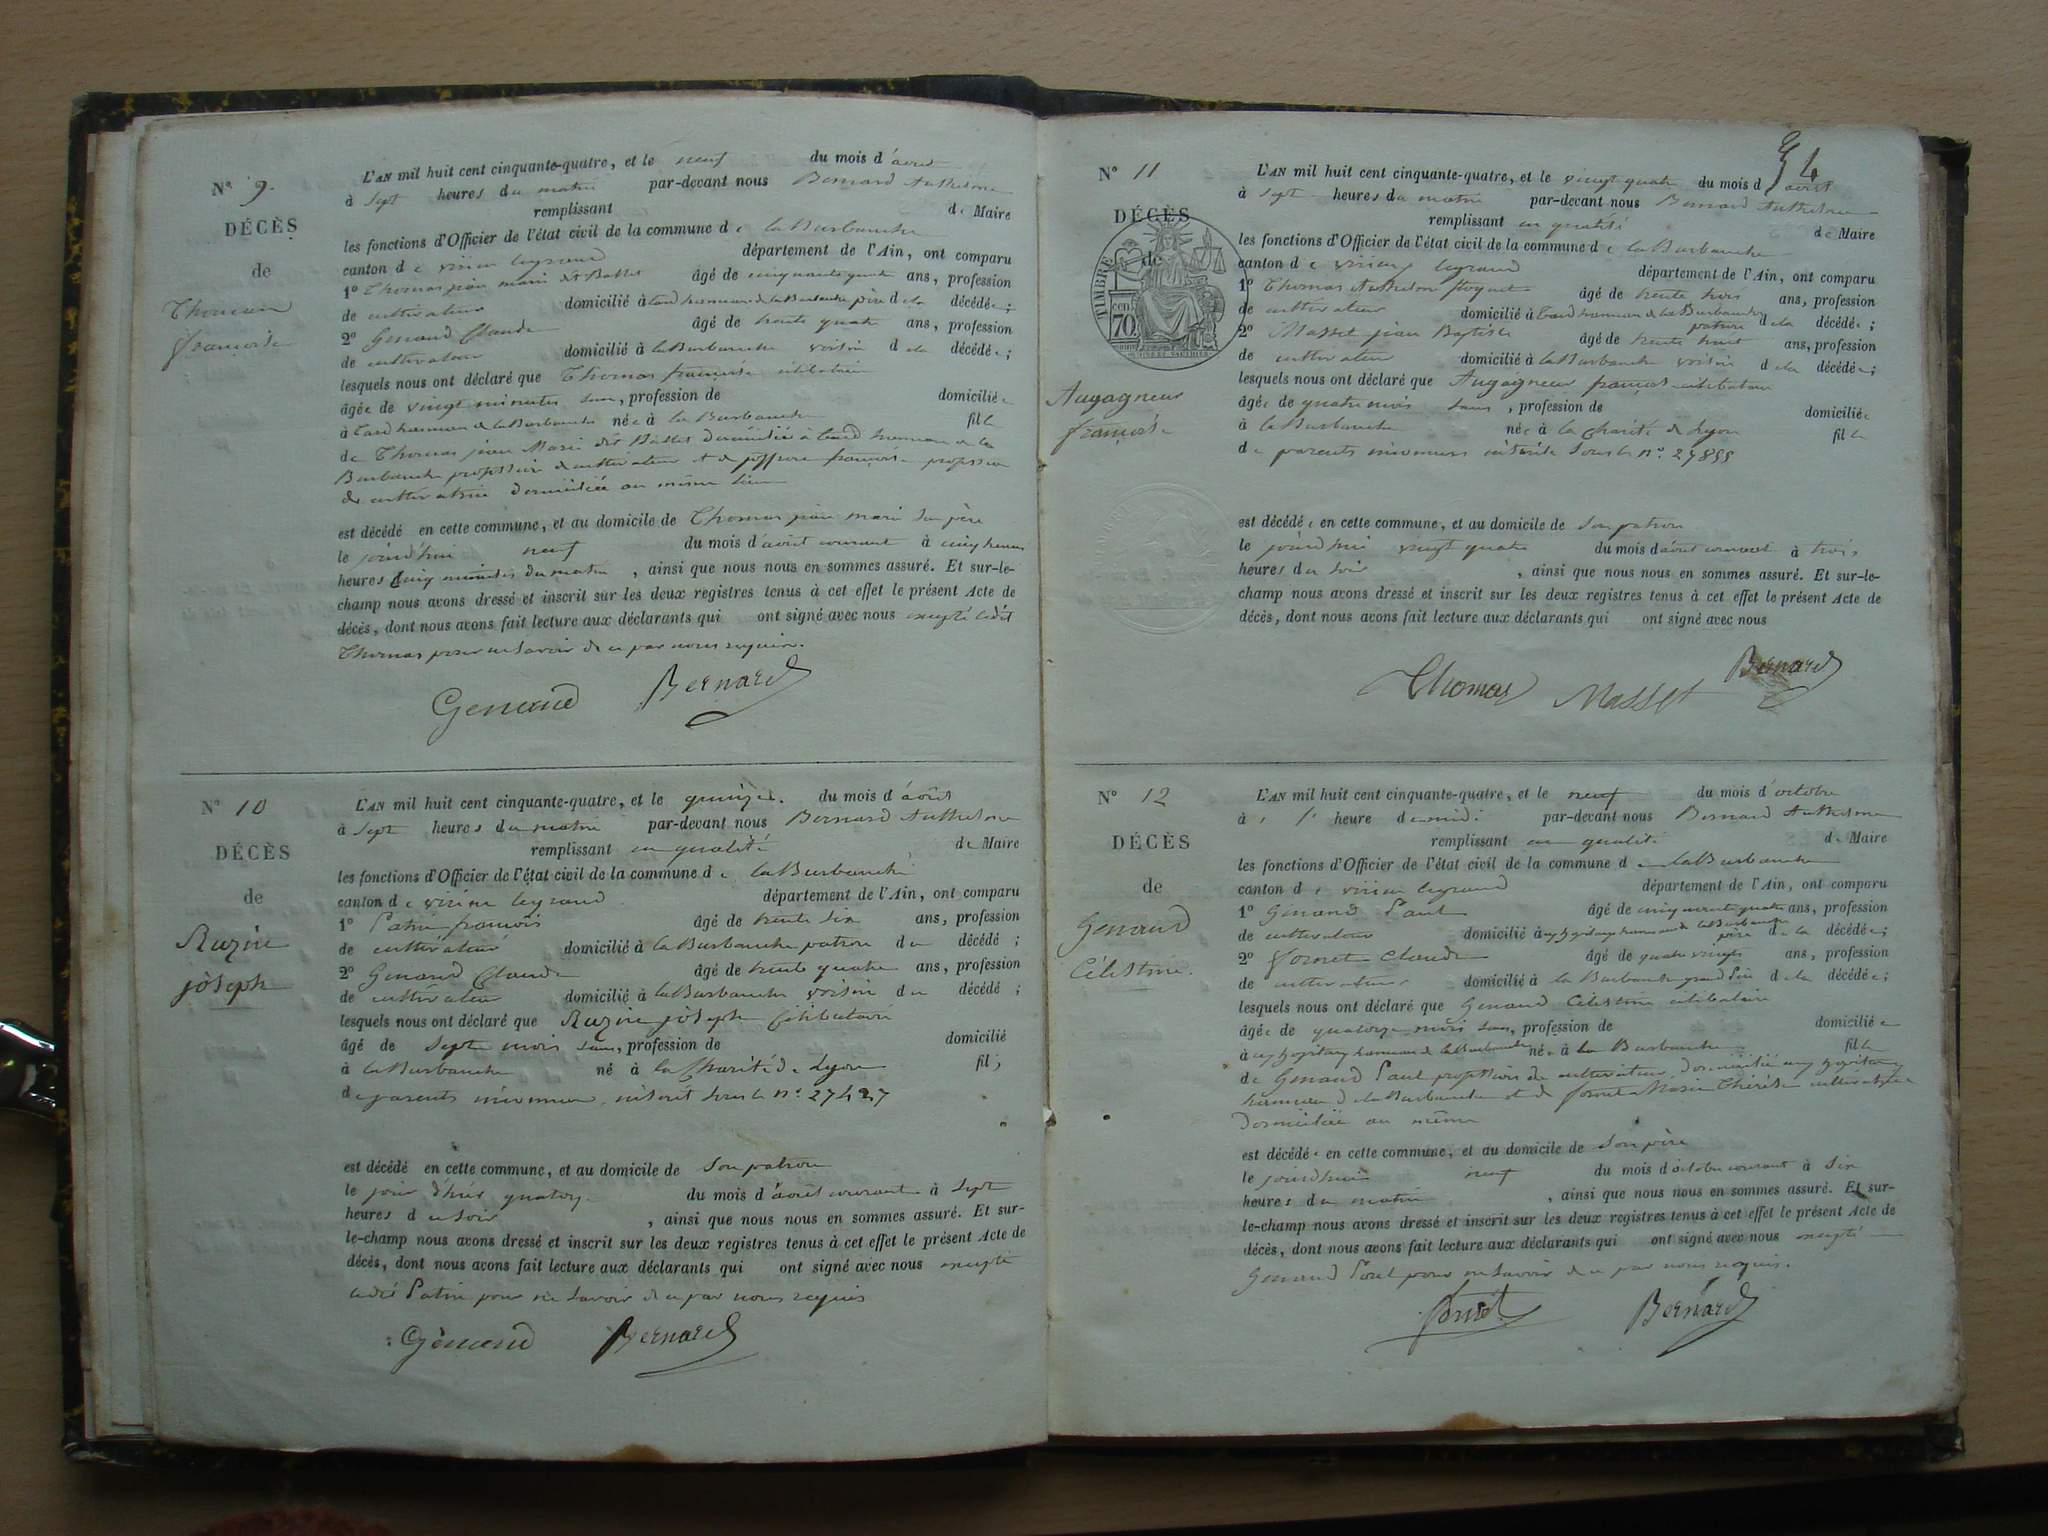 N° 9.
DÉCÈS
de
Thomas
françoise
L'AN mil huit cent cinquante-quatre, et le neuf du mois d'août
à sept heures du matin par-devant nous Bernard Anthelme
remplissant de Maire
les fonctions d'Officier de l'état civil de la commune de la Burbanche
canton de virieu legrand département de l'Ain, ont comparu
1° Thomas jean marie dit Ballet âgé de cinquante quatre ans, profession
de cultivateur domicilié à hameau de la Burbanche père de la décédée;
2° Genand Claude âgé de trente quatre ans, profession
de cultivateur domicilié à la Burbanche voisin de la décédée;
lesquels nous ont déclaré que Thomas françoise célibataire
âgée de vingt minutes sans, profession de domiciliée
à hameau de la Burbanche née à la Burbanche fille
de Thomas jean Marie dit Ballet domicilié à hameau de la
Burbanche profession de cultivateur et de françoise profession
de cultivatrice domiciliée au même lieu
est décédé en cette commune, et au domicile de Thomas jean marie son père
le jourd'hui neuf du mois d'août courant à cinq heures
heures cinq minutes du matin, ainsi que nous nous en sommes assuré. Et sur-le-
champ nous avons dressé et inscrit sur les deux registres tenus à cet effet le présent Acte de
décès, dont nous avons fait lecture aux déclarants qui ont signé avec nous excepté ledit
Thomas pour ne savoir de ce par nous requis.
Genand Bernard
N° 10
DÉCÈS
de
Ruzire
joseph
L'AN mil huit cent cinquante-quatre, et le quinze. du mois d'août
à sept heures du matin par-devant nous Bernard Anthelme
remplissant en qualité de Maire
les fonctions d'Officier de l'état civil de la commune de la Burbanche
canton de virieu legrand département de l'Ain, ont comparu
1° Patin françois âgé de trente six ans, profession
de cultivateur domicilié à la Burbanche patron du décédé;
2° Genand Claude âgé de trente quatre ans, profession
de cultivateur domicilié à la Burbanche voisin du décédé;
lesquels nous ont déclaré que Ruzire joseph célibataire
âgé de sept mois sans, profession de domicilié
à la Burbanche né à la Charité de Lyon fils
de parents inconnus, inscrit sous le n° 27427
est décédé en cette commune, et au domicile de son patron
le jour d'hier quatorze du mois d'août courant à sept
heures du soir, ainsi que nous nous en sommes assuré. Et sur-
le-champ nous avons dressé et inscrit sur les deux registres tenus à cet effet le présent Acte de
décès, dont nous avons fait lecture aux déclarants qui ont signé avec nous excepté
ledit Patin pour ne savoir de ce par nous requis
Genand Bernard
34
N° 11
DÉCÈS
de
TIMBRE
70
Augagneur
françoise
L'AN mil huit cent cinquante-quatre, et le vingt quatre du mois d'août
à sept heures du matin par-devant nous Bernard Anthelme
remplissant en qualité de Maire
les fonctions d'Officier de l'état civil de la commune de la Burbanche
canton de virieu legrand département de l'Ain, ont comparu
1° Thomas Anthelme âgé de trente trois ans, profession
de cultivateur domicilié à hameau de la Burbanche patron de la décédée;
2° Masset jean Baptiste âgé de trente huit ans, profession
de cultivateur domicilié à la Burbanche voisin de la décédée;
lesquels nous ont déclaré que Augagneur françoise célibataire
âgée de quatre mois sans, profession de domiciliée
à la Burbanche née à la charité de Lyon fille
de parents inconnus inscrite sous le n° 27855
est décédée en cette commune, et au domicile de son patron
le jourd'hui vingt quatre du mois d'août courant à trois
heures du soir, ainsi que nous nous en sommes assuré. Et sur-le-
champ nous avons dressé et inscrit sur les deux registres tenus à cet effet le présent Acte de
décès, dont nous avons fait lecture aux déclarants qui ont signé avec nous
Thomas Masset Bernard
N° 12
DÉCÈS
de
Genand
Célestine.
L'AN mil huit cent cinquante-quatre, et le neuf du mois d'octobre
à heure de midi par-devant nous Bernard Anthelme
remplissant en qualité de Maire
les fonctions d'Officier de l'état civil de la commune de la Burbanche
canton de virieu legrand département de l'Ain, ont comparu
1° Genand Paul âgé de cinquante quatre ans, profession
de cultivateur domicilié à hameau de la Burbanche père de la décédée;
2° fornet Claude âgé de quatre vingts ans, profession
de cultivateur domicilié à la Burbanche grand père de la décédée;
lesquels nous ont déclaré que Genand Célestine célibataire
âgée de quatorze mois sans, profession de domiciliée
à hameau de la Burbanche née à la Burbanche fille
de Genand Paul profession de cultivateur domicilié
hameau de la Burbanche et de fornet Marie Thérèse cultivatrice
domiciliée au même
est décédée en cette commune, et au domicile de son père
le jourd'hui neuf du mois d'octobre courant à six
heures du matin, ainsi que nous nous en sommes assuré. Et sur-
le-champ nous avons dressé et inscrit sur les deux registres tenus à cet effet le présent Acte de
décès, dont nous avons fait lecture aux déclarants qui ont signé avec nous excepté
Genand Paul pour ne savoir de ce par nous requis.
fornet Bernard